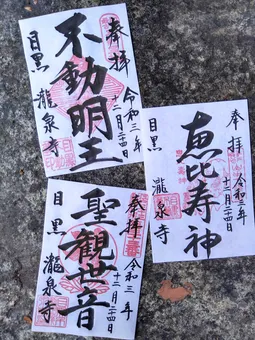 奉拝
令和三年
十二月二十四日
不動明王
目黒
瀧泉寺
奉拝
令和三年
十二月二十四日
恵比寿神
目黒
瀧泉寺
奉拝
令和三年
十二月二十四日
聖観世音
目黒
瀧泉寺